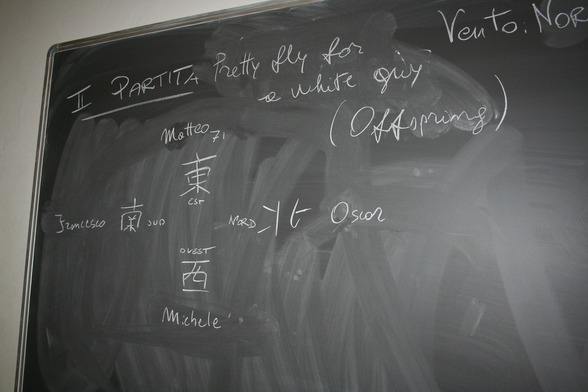 Vento: NOR
II PARTITA Pretty fly for
a white guy
(Offspring)
Matteo 71
東
EST
Francesco 南 SUD
NORD 北 Oscar
OVEST
西
Michele